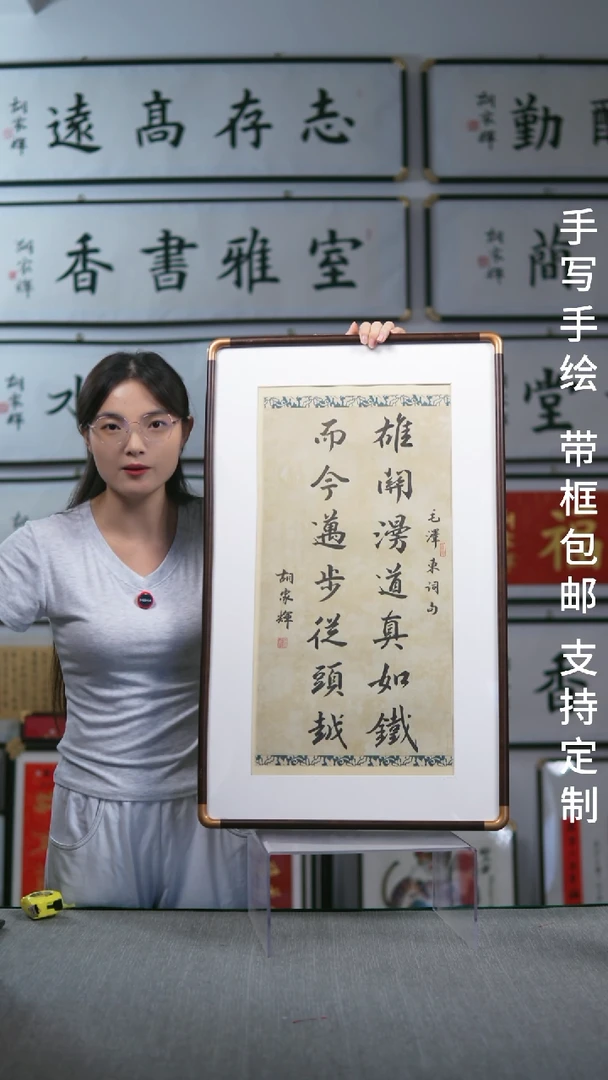 志存髙遠
胡家輝
勤
胡家輝
室雅書香
胡家輝
胡家輝
胡家輝
堂
福
香
雄關漫道真如鐵
而今邁步從頭越
毛澤東詞句
胡家輝
手写手绘 带框包邮 支持定制